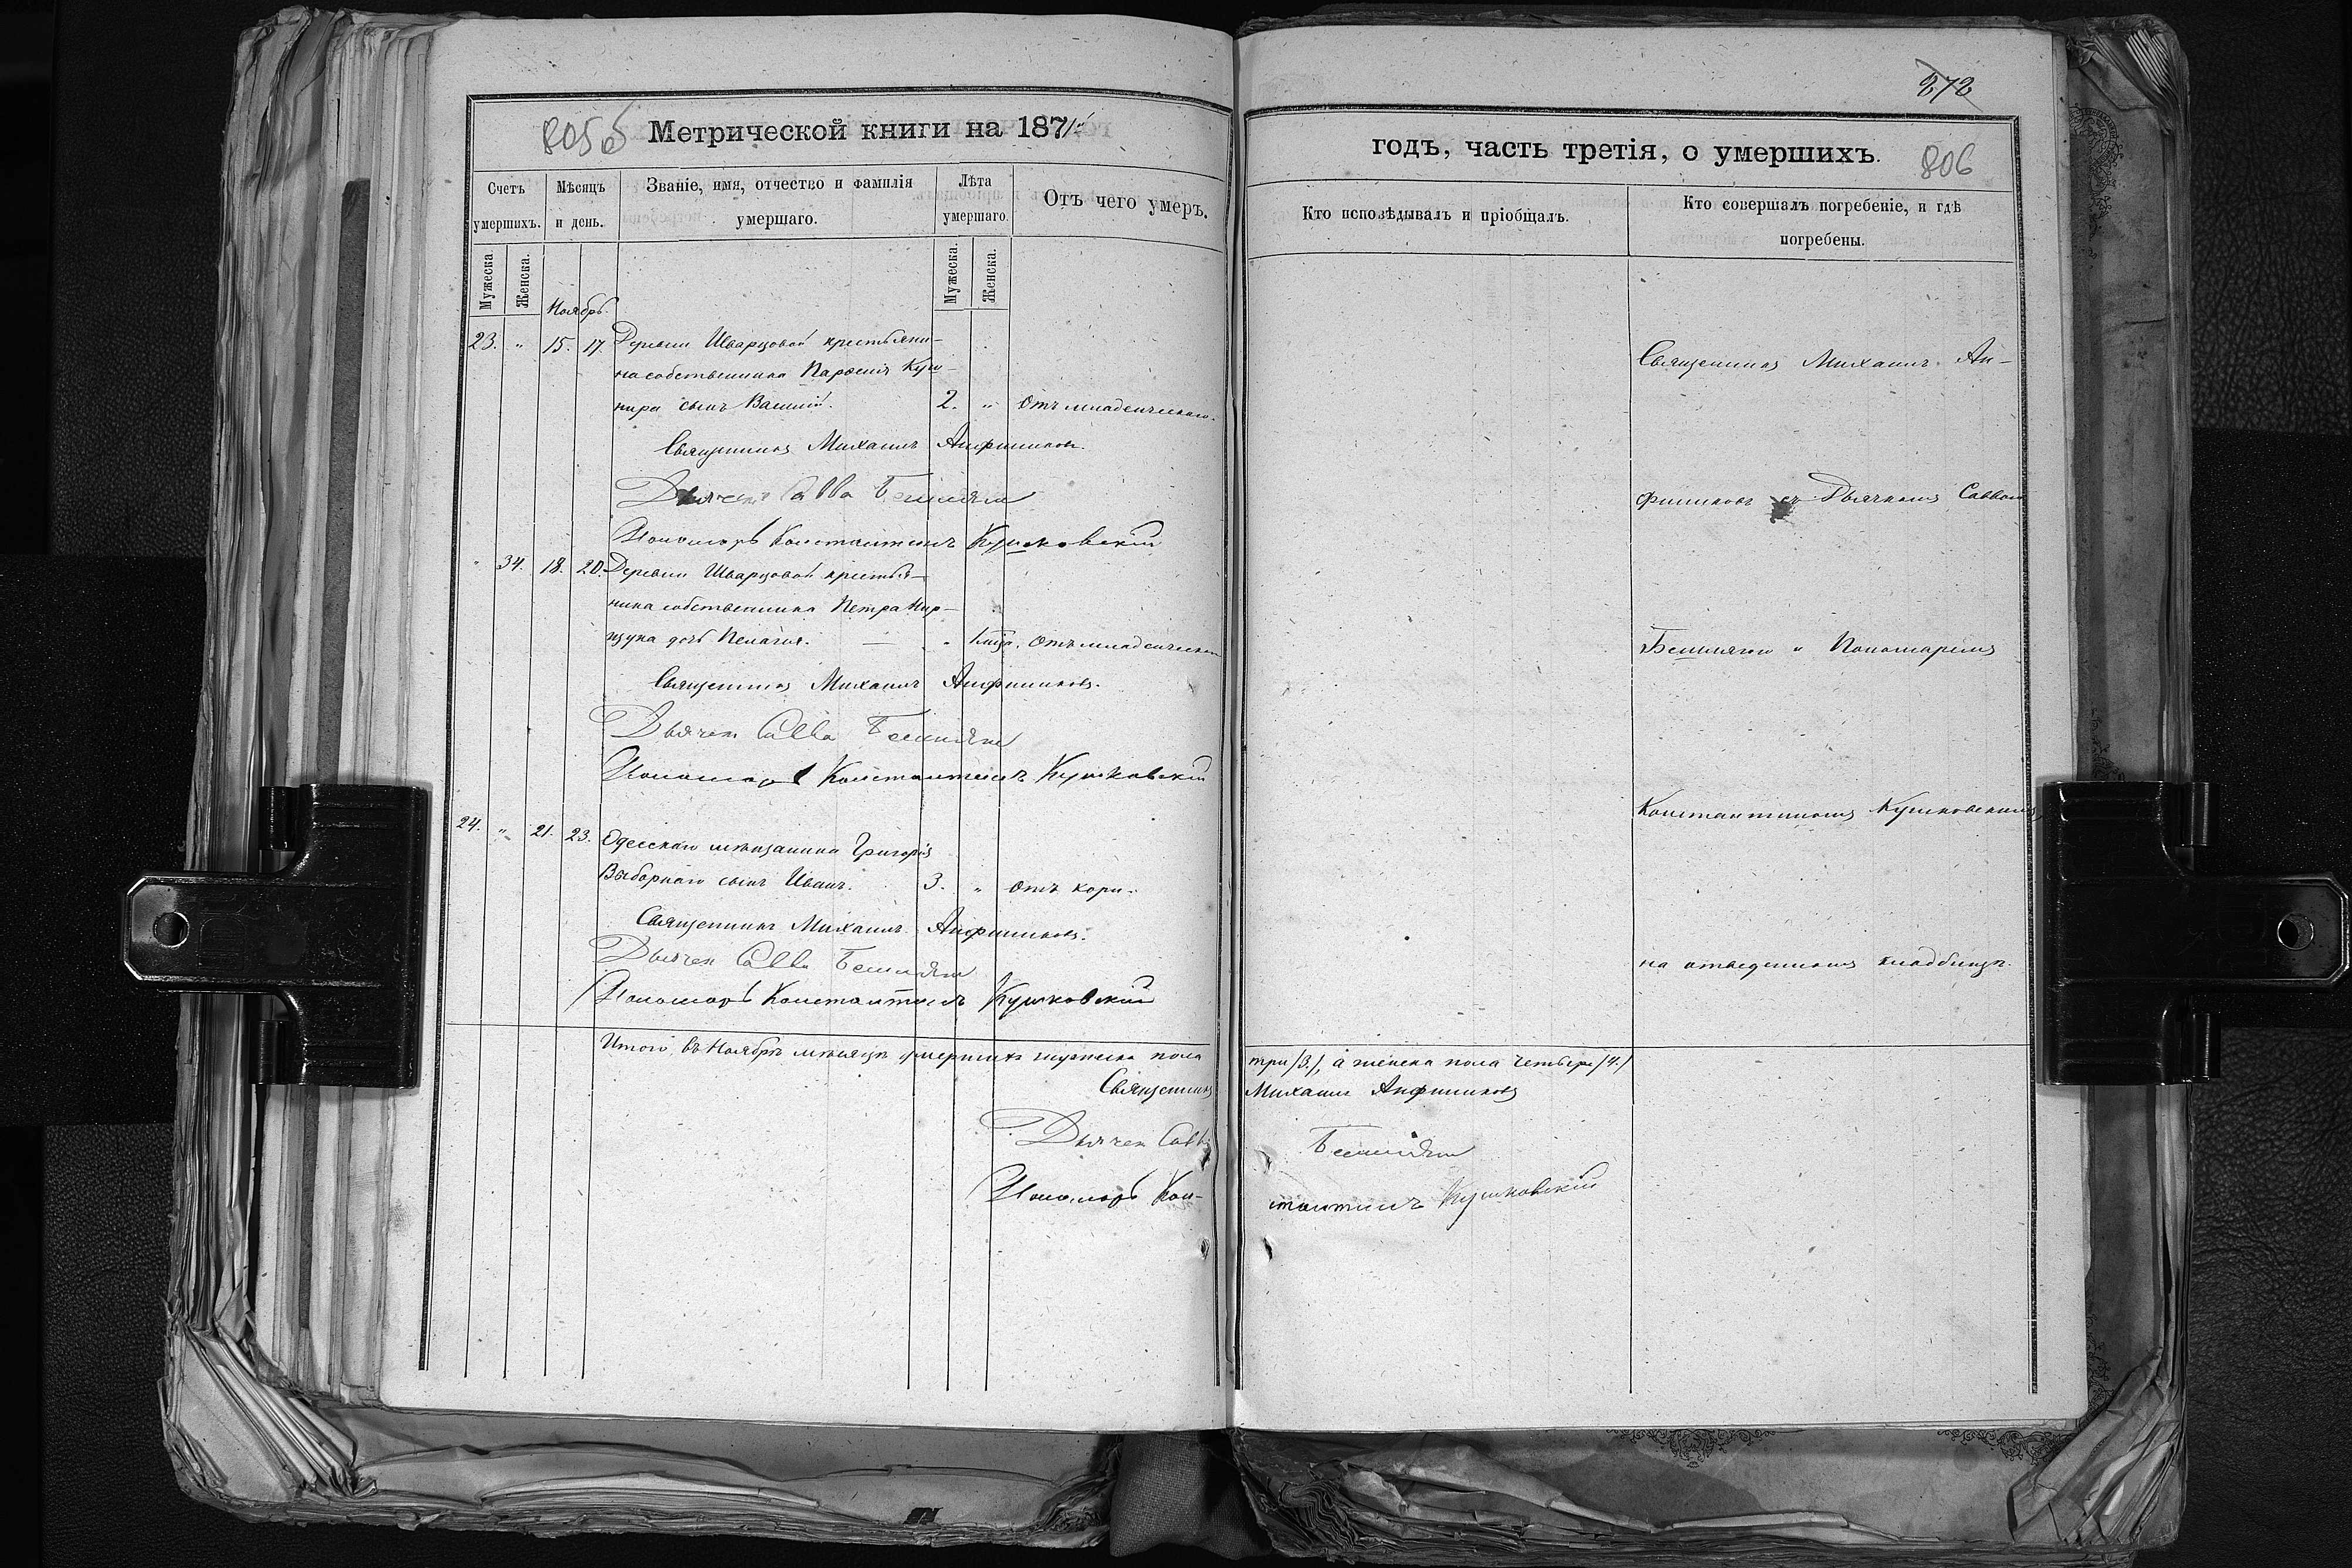 805б Метрической книги на 1871й
Счетъ умершихъ.
Мѣсяцъ и день.
Званіе, имя, отчество и фамилія умершаго.
Лѣта умершаго.
Отъ чего умеръ.
Мужеска.
Женска.
Мужеска.
Женска.
Ноябрь.
23. " 15. 17. Деревни Шварцовой крестьяни-
на собственника Парѳенія Куш-
нира сынъ Василій. 2. " Отъ младенческаго.
Священникъ Михаилъ Анфиниковъ.
Дьячекъ Савва
Пономарь Константинъ Кушковскій
" 34. 18. 20. Деревни Шварцовой крестья-
нина собственника Петра
дочь Пелагія. — " Отъ младенческаго
Священникъ Михаилъ Анфиниковъ.
Дьячек Савва
Пономарь Константинъ Кушковскій
24. " 21. 23. Одесскаго мѣщанина Григорія
Выборнаго сынъ Иванъ. 3. " Отъ кори.
Священникъ Михаилъ Анфиниковъ.
Дьячек Савва
Пономарь Константинъ Кушковскій
Итого въ Ноябрѣ мѣсяцѣ умершихъ мужеска пола
Священникъ
Дьячек Савва
Пономарь Кон-
272
годъ, часть третія, о умершихъ. 806
Кто исповѣдывалъ и пріобщалъ.
Кто совершалъ погребеніе, и гдѣ
погребены.
Священникъ Михаилъ Ан-
финиковъ съ Дьячкомъ Саввою
и Пономаремъ
Константиномъ Кушковскимъ
на отведенномъ кладбищѣ.
три /3./, а женска пола четыре /4./
Михаилъ Анфиниковъ
стантинъ Кушковскій